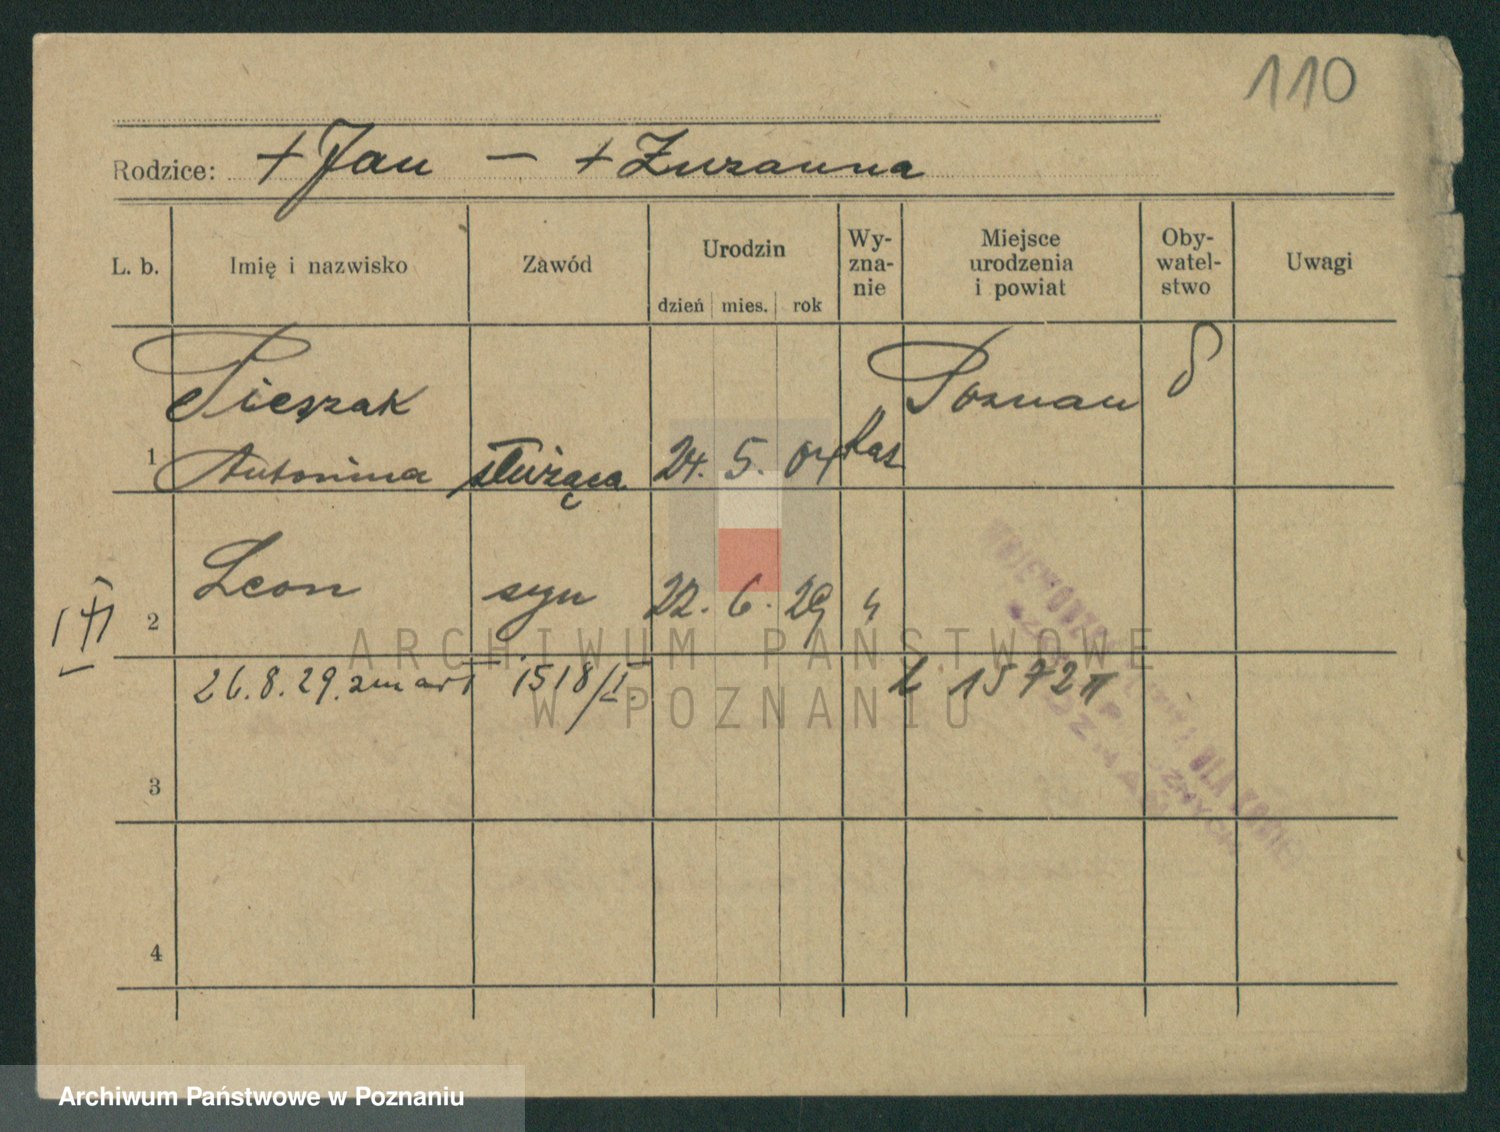 110
Rodzice: + Jan — + Zuzanna
L. b. Imię i nazwisko Zawód Urodzin Wy-zna-nie Miejsce urodzenia i powiat Oby-watel-stwo Uwagi
dzień mies. rok
Pieszak Poznań
1 Antonina służąca 24. 5. 04 kat
2 Leon syn 22. 6. 29 "
26.8.29. zmarł 1518/II. L 1572 II
3
4
ARCHIWUM PAŃSTWOWE
W POZNANIU
Archiwum Państwowe w Poznaniu